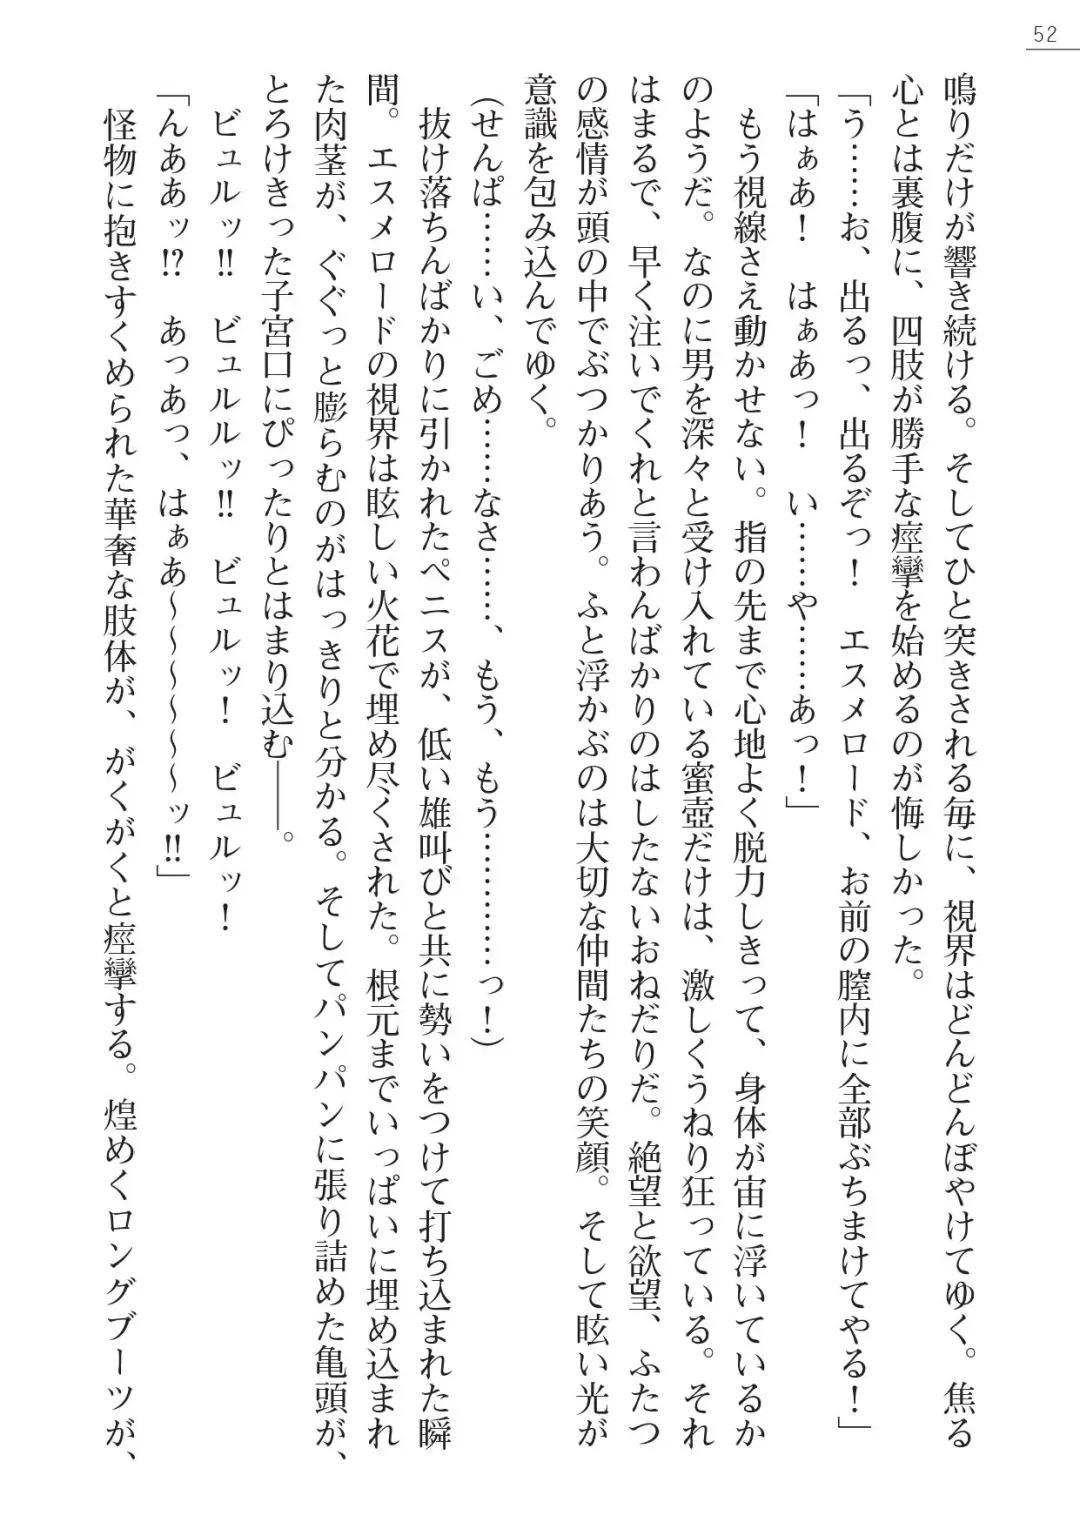 52
鳴りだけが響き続ける。そしてひと突きされる毎に、視界はどんどんぼやけてゆく。焦る
心とは裏腹に、四肢が勝手な痙攣を始めるのが悔しかった。
「う……お、出るっ、出るぞっ！　エスメロード、お前の膣内に全部ぶちまけてやる！」
「はぁあ！　はぁあっ！　い……や……あっ！」
もう視線さえ動かせない。指の先まで心地よく脱力しきって、身体が宙に浮いているか
のようだ。なのに男を深々と受け入れている蜜壺だけは、激しくうねり狂っている。それ
はまるで、早く注いでくれと言わんばかりのはしたないおねだりだ。絶望と欲望、ふたつ
の感情が頭の中でぶつかりあう。ふと浮かぶのは大切な仲間たちの笑顔。そして眩い光が
意識を包み込んでゆく。
（せんぱ……い、ごめ……なさ……、もう、もう…………っ！）
抜け落ちんばかりに引かれたペニスが、低い雄叫びと共に勢いをつけて打ち込まれた瞬
間。エスメロードの視界は眩しい火花で埋め尽くされた。根元までいっぱいに埋め込まれ
た肉茎が、ぐぐっと膨らむのがはっきりと分かる。そしてパンパンに張り詰めた亀頭が、
とろけきった子宮口にぴったりとはまり込む――。
ビュルッ!!　ビュルルッ!!　ビュルッ！　ビュルッ！
「んああッ!?　あっあっ、はぁあ～～～～～～ッ!!」
怪物に抱きすくめられた華奢な肢体が、がくがくと痙攣する。煌めくロングブーツが、